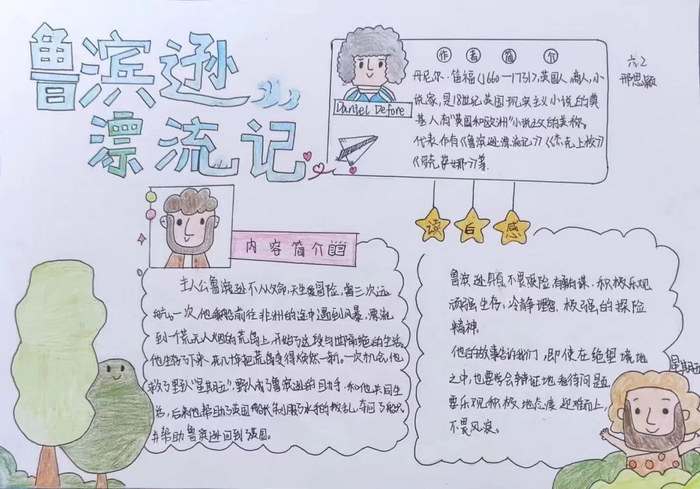 鲁滨逊
漂流记
作者简介
丹尼尔·笛福(1660—1731),英国人,商人,小
说家,是18世纪英国现实主义小说的奠
基人,有"英国和欧洲"小说之父的美称。
代表作有《鲁滨逊漂流记》《杰克上校》
等。
Daniel Defore
六2
邢思颖
内容简介
主人公鲁滨逊不从父命,大冒险,三次远
航。一次他前往非洲的途中遇到风暴,漂流
到一个荒无人烟的荒岛上,开始了与世隔绝的生活。
他生存了下来,荒岛变得焕然一新。一次机会,他
救了野人"星期五",野人成了鲁滨逊的和他共同生
后来他帮助了英国船长夺回了船只
并帮助鲁滨逊回到英国。
读后感
鲁滨逊具有不畏艰险,积极乐观
顽强生存,冷静理智,极强的探险
精神。
他的故事告诉我们,即使在绝望境地
之中,也要学会辩证地看待问题
要乐观积极地态度迎难而上,
不畏风浪。
星期五